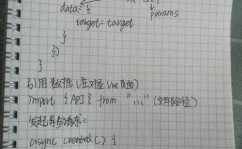 data: {
params
target: target
}
})
}
引用 数据 (在对应 Vue 页面)
import { API } from "..." (文件路径)
发起异步请求:
async created() {